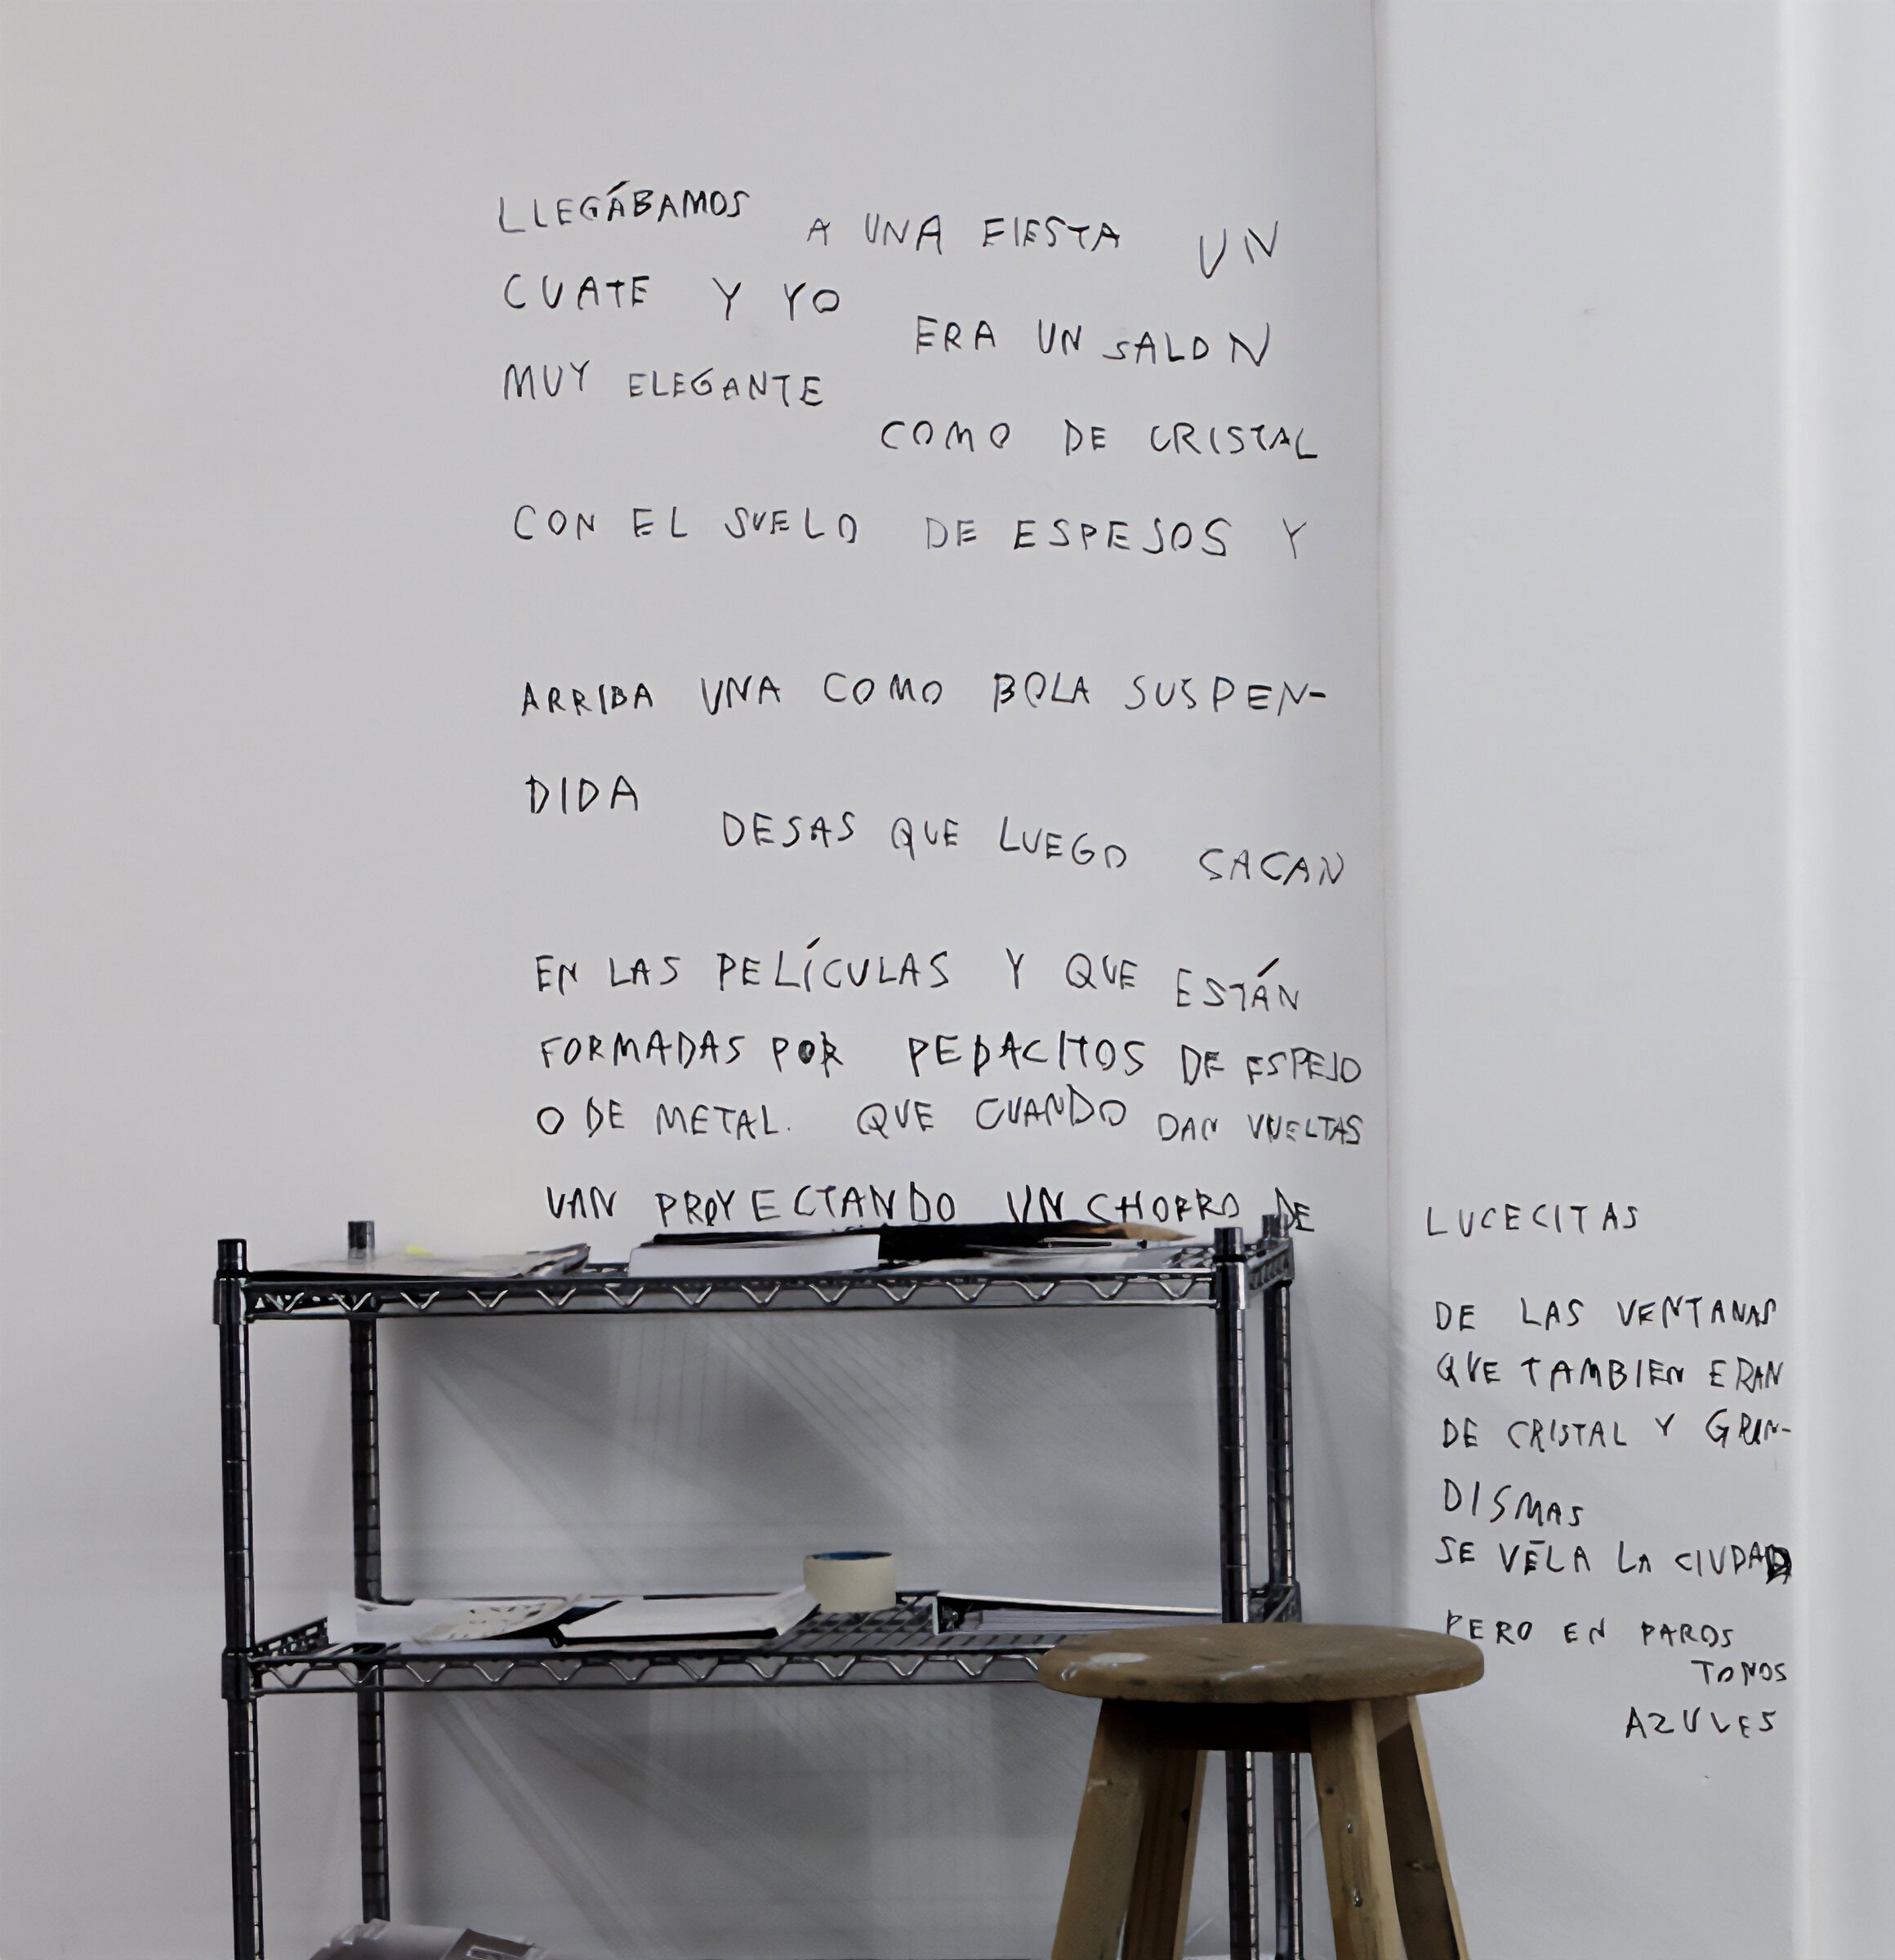 LLEGÁBAMOS A UNA FIESTA UN
CUATE Y YO ERA UN SALON
MUY ELEGANTE COMO DE CRISTAL
CON EL SUELO DE ESPEJOS Y
ARRIBA UNA COMO BOLA SUSPEN-
DIDA DESAS QUE LUEGO SACAN
EN LAS PELÍCULAS Y QUE ESTÁN
FORMADAS POR PEDACITOS DE ESPEJO
O DE METAL. QUE CUANDO DAN VUELTAS
VAN PROYECTANDO UN CHORRO DE
LUCECITAS
DE LAS VENTANAS
QUE TAMBIEN ERAN
DE CRISTAL Y GRAN-
DISMAS
SE VEÍA LA CIUDAD
PERO EN PAROS
TONOS
AZULES